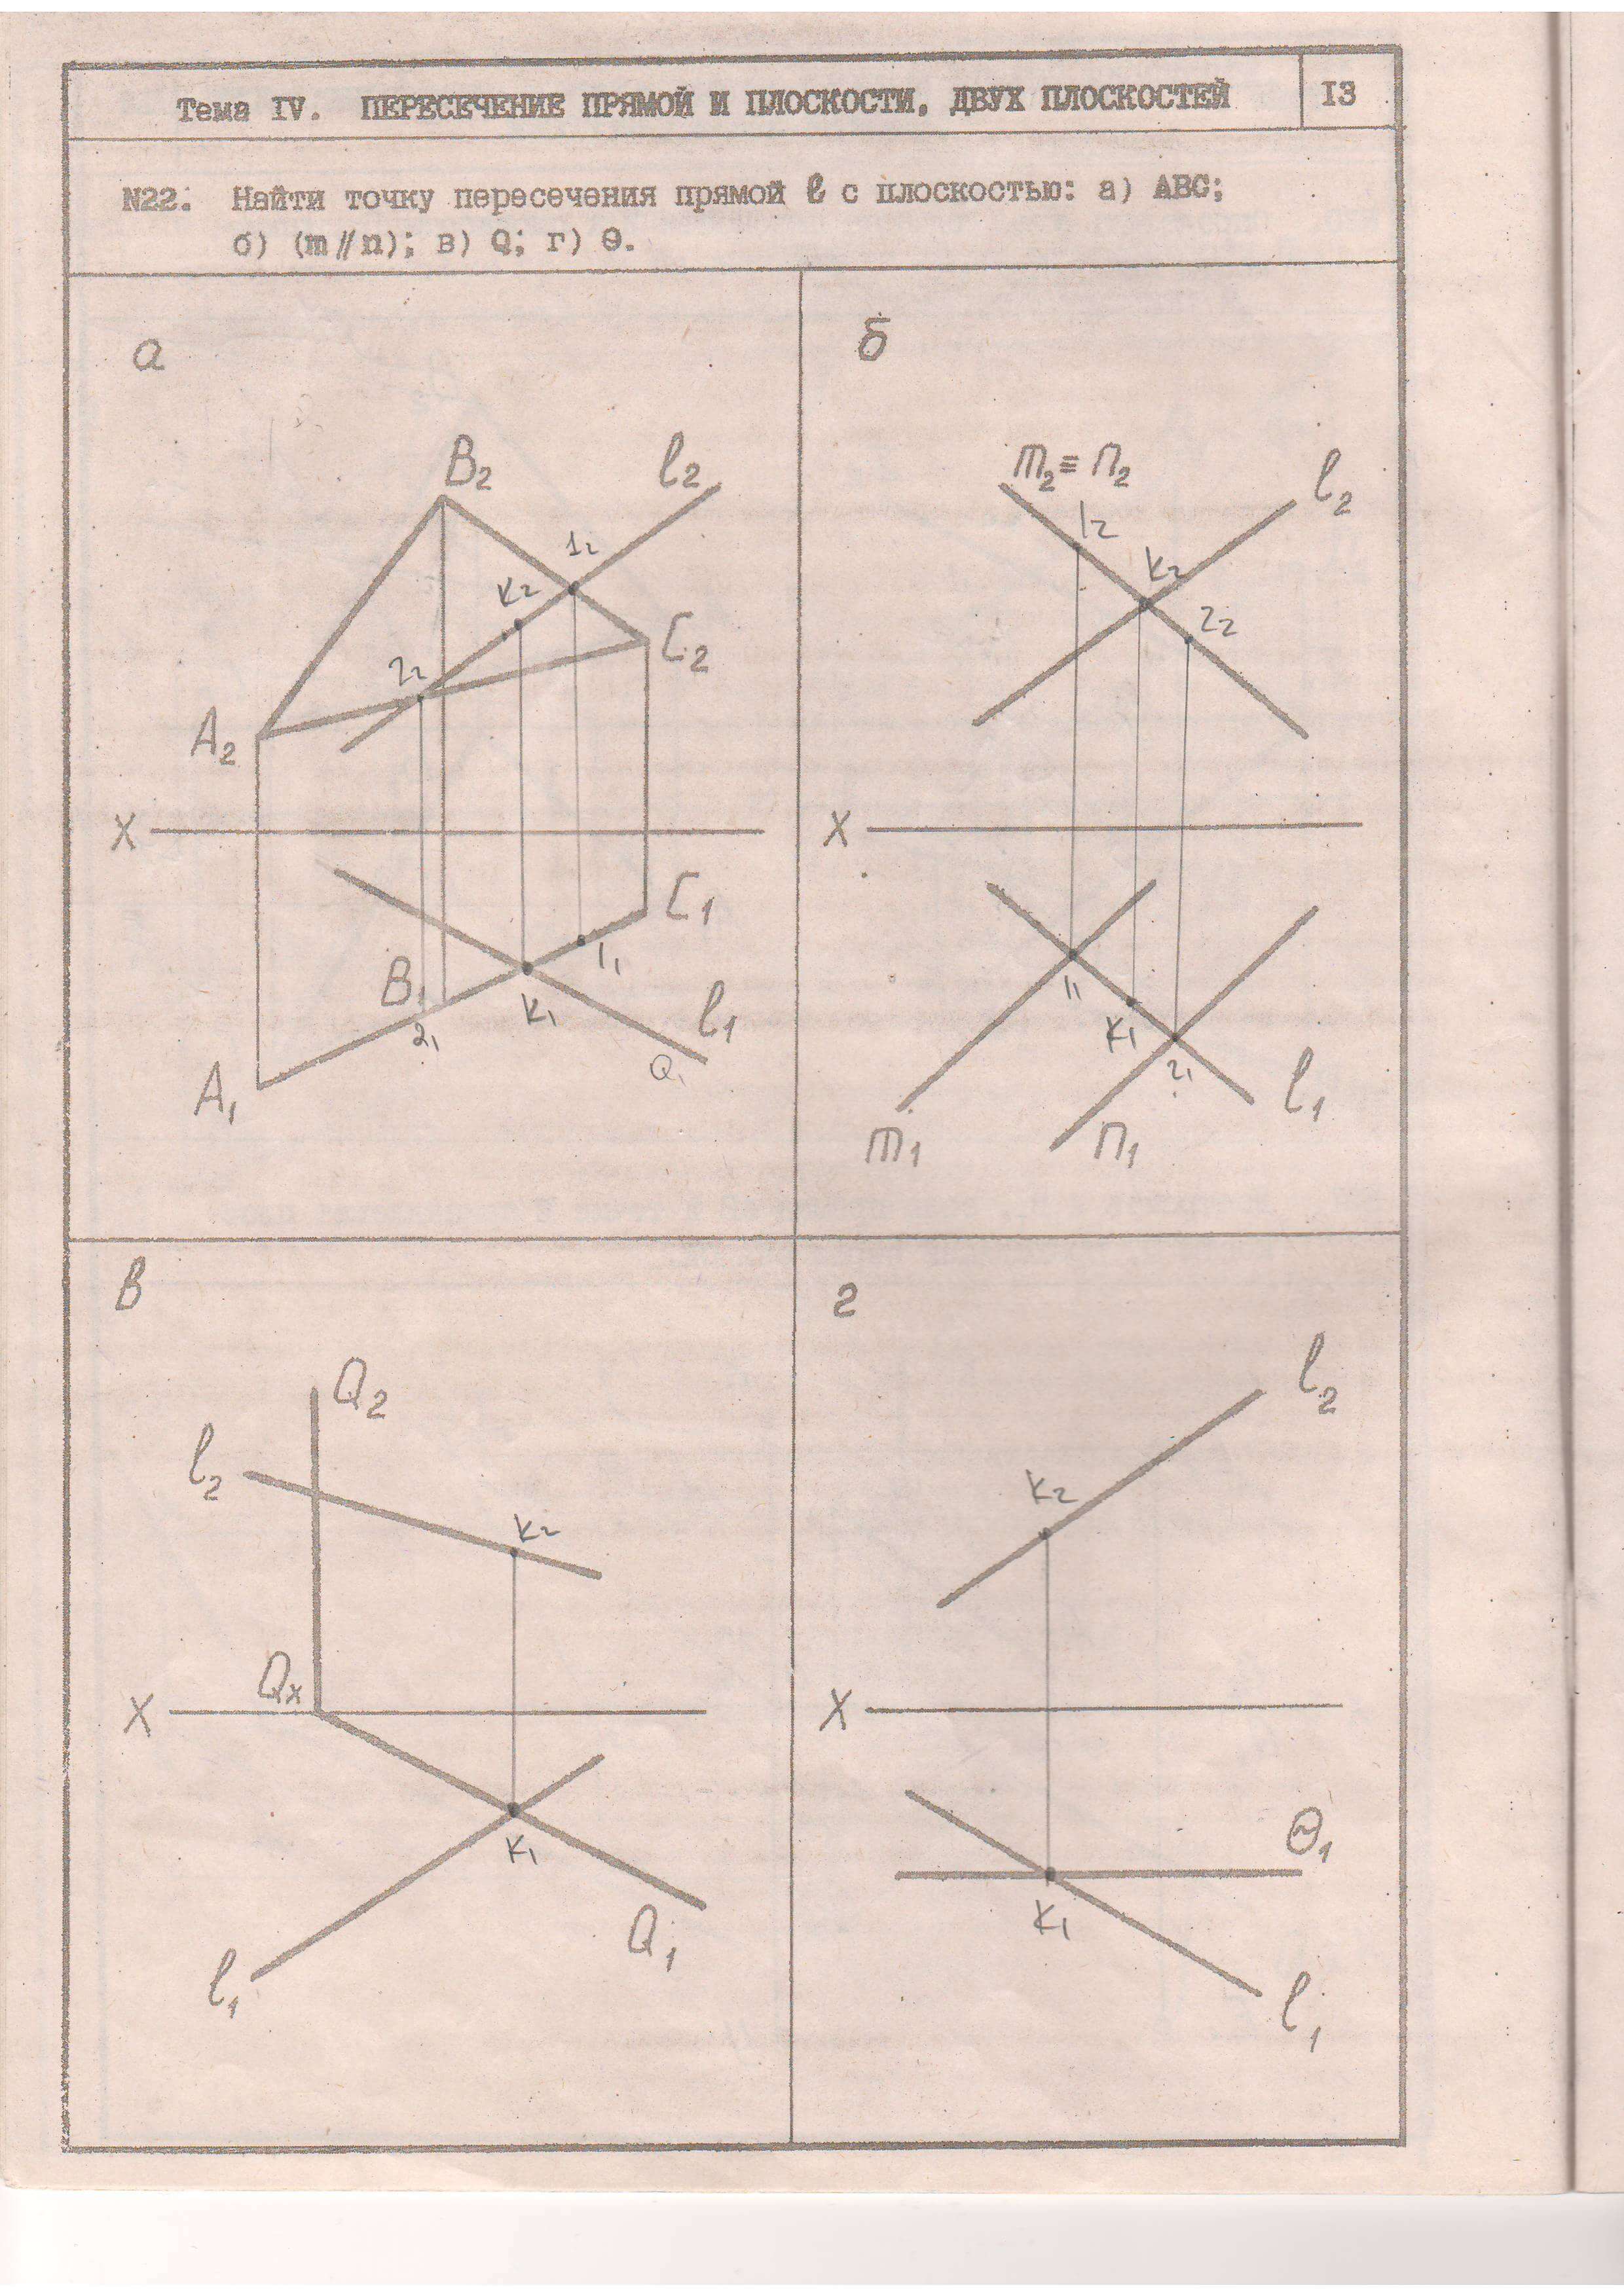 Тема IV. ПЕРЕСЕЧЕНИЕ ПРЯМОЙ И ПЛОСКОСТИ, ДВУХ ПЛОСКОСТЕЙ
I3
N22. Найти точку пересечения прямой ℓ с плоскостью: а) АВС;
б) (m // n); в) Q; г) Θ.
а
B₂
ℓ₂
1₂
K₂
C₂
2₂
A₂
X
C₁
B₁
1₁
2₁
K₁
ℓ₁
Q₁
A₁
б
m₂≡n₂
ℓ₂
1₂
K₂
2₂
X
1₁
K₁
2₁
ℓ₁
m₁
n₁
в
Q₂
ℓ₂
K₂
Qₓ
X
K₁
Q₁
ℓ₁
г
ℓ₂
K₂
X
Θ₁
K₁
ℓ₁